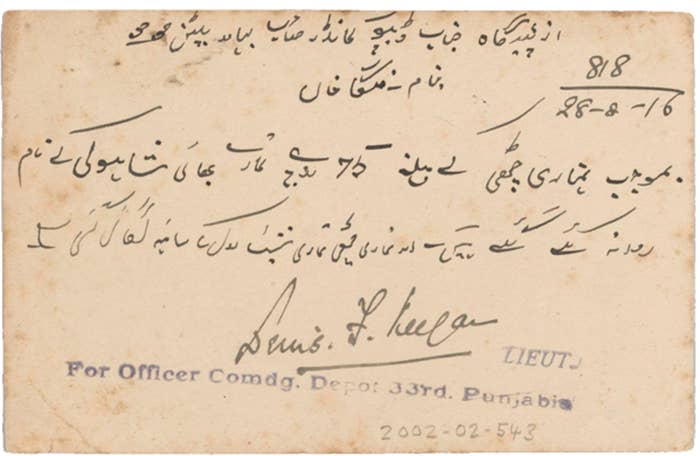 از پیشگاہ جناب ڈیپو کمانڈر صاحب بہادر پلٹن ۳۳
818
28-8-16
بنام خان
بموجب تمہاری چٹھی کے مبلغ 75 روپے تمہارے بھائی کے نام
روانہ کئے گئے اور تمہاری چٹھی تمہاری
Denis. F. Keegan
LIEUT.
For Officer Comdg. Depot 33rd. Punjabis
2002-02-543